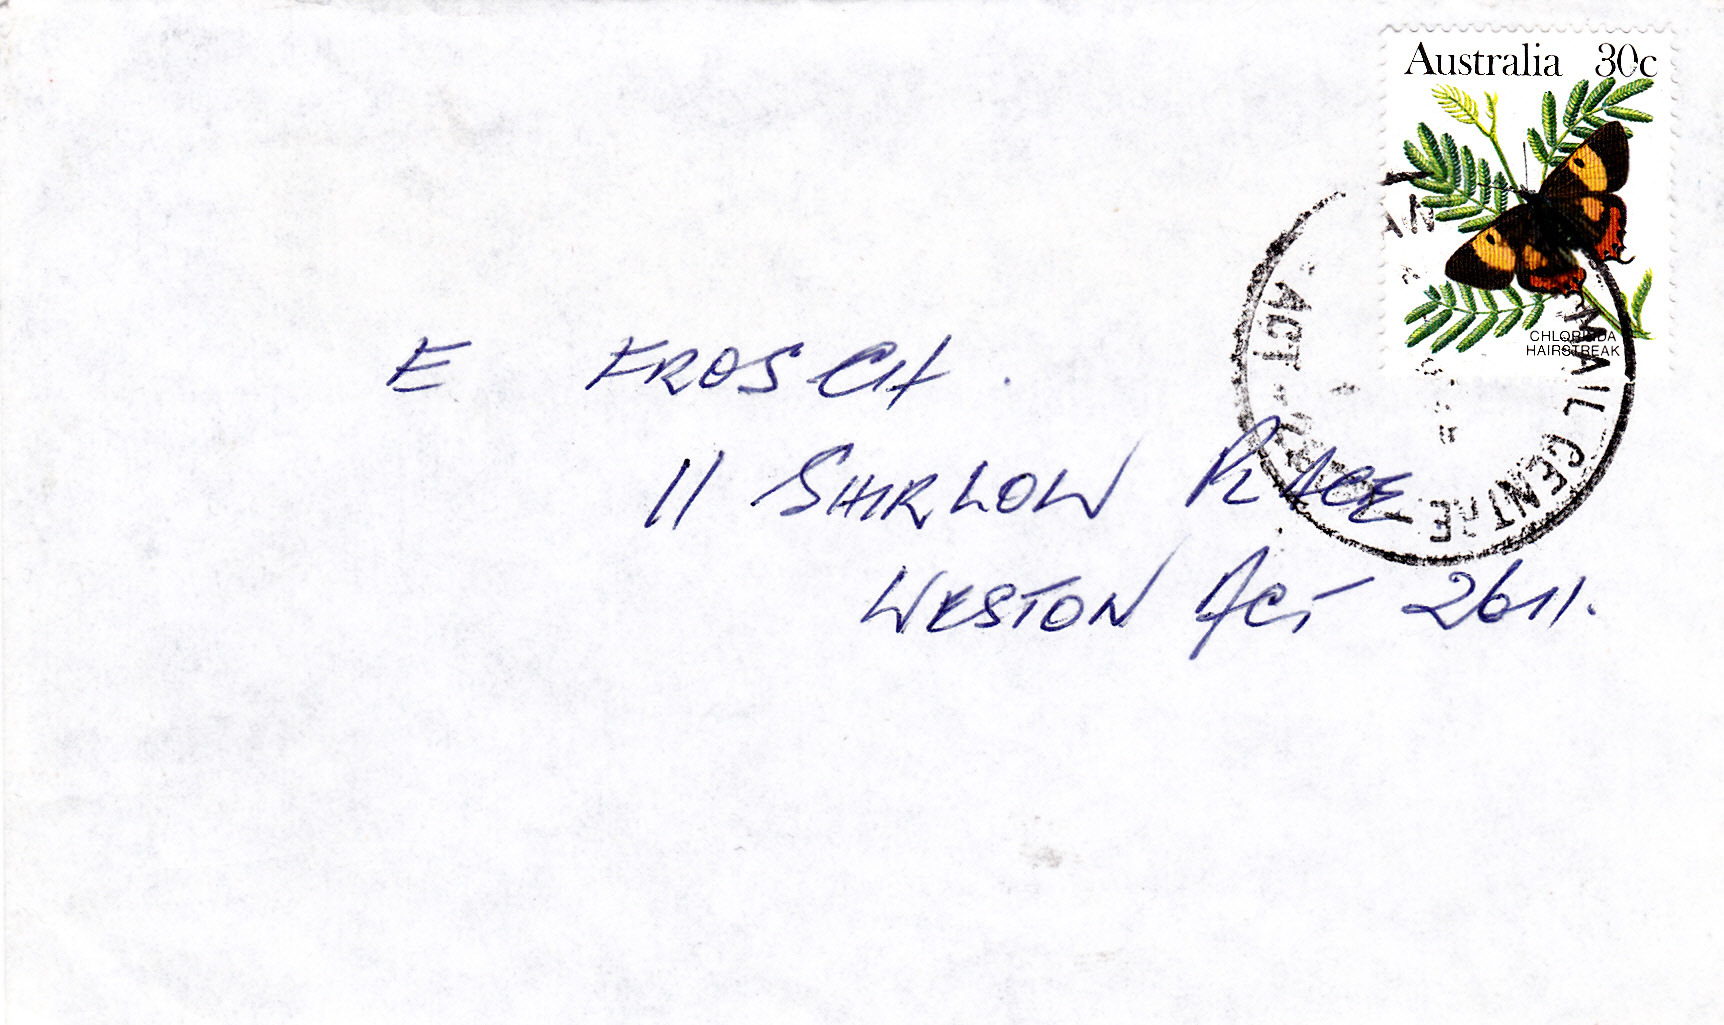 Australia 30c
CHLORINDA
HAIRSTREAK
MAIL CENTRE
ACT
E FROSCH.
11 SHIRLOW PLACE
WESTON ACT 2611.